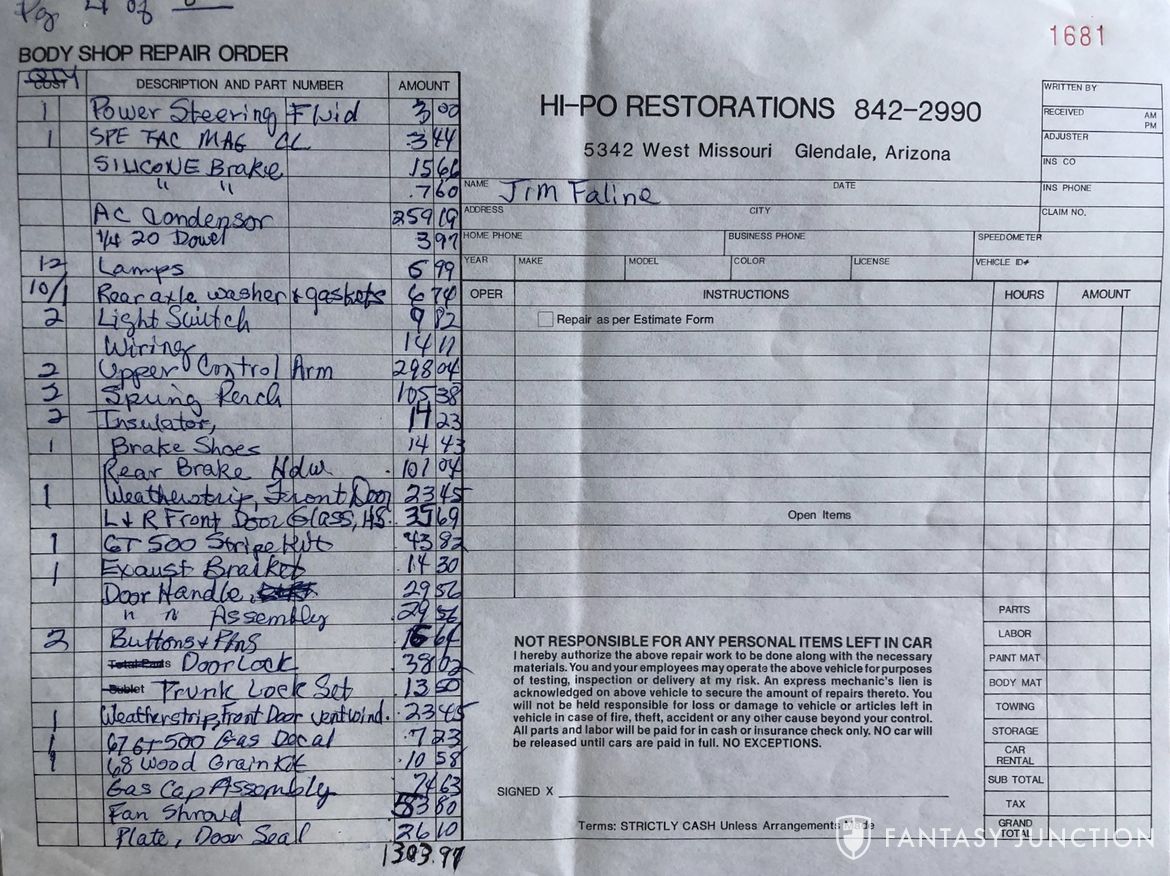 Pg 4 of
1681
BODY SHOP REPAIR ORDER
QTY DESCRIPTION AND PART NUMBER AMOUNT
1 Power Steering Fluid 3 00
1 SPE TAC MAG CL .3 44
SILICONE Brake 15 66
" " .7 60
AC Condensor 259 19
1/4 20 Dowel 3 97
12 Lamps 5 99
10/1 Rear axle washer & gaskets 6 74
2 Light Switch 9 82
Wiring 14 11
2 Upper Control Arm 298 04
2 Spring Perch 105 38
2 Insulator, 14 23
1 Brake Shoes 14 43
Rear Brake Hdw. 101 04
1 Weatherstrip, Front Door 23 45
L & R Front Door Glass, HS. 35 69
1 GT 500 Stripe Kit 43 82
1 Exaust Bracket 14 30
Door Handle, 29 56
" " Assembly 29 56
2 Buttons & Pins 16 64
Total Parts Door Lock 38 02
Sublet Trunk Lock Set 13 50
1 Weatherstrip, Front Door ventwind. 23 45
1 67 GT 500 Gas Decal .7 23
1 68 Wood Grain Kit .10 58
Gas Cap Assembly 74 63
Fan Shroud 53 80
Plate, Door Seal 36 10
1303.97
HI-PO RESTORATIONS 842-2990
5342 West Missouri Glendale, Arizona
WRITTEN BY
RECEIVED AM PM
ADJUSTER
INS CO
INS PHONE
CLAIM NO.
NAME Jim Faline DATE
ADDRESS CITY
HOME PHONE BUSINESS PHONE SPEEDOMETER
YEAR MAKE MODEL COLOR LICENSE VEHICLE ID#
OPER INSTRUCTIONS HOURS AMOUNT
Repair as per Estimate Form
Open Items
PARTS
LABOR
PAINT MAT
BODY MAT
TOWING
STORAGE
CAR RENTAL
SUB TOTAL
TAX
GRAND TOTAL
NOT RESPONSIBLE FOR ANY PERSONAL ITEMS LEFT IN CAR
I hereby authorize the above repair work to be done along with the necessary
materials. You and your employees may operate the above vehicle for purposes
of testing, inspection or delivery at my risk. An express mechanic's lien is
acknowledged on above vehicle to secure the amount of repairs thereto. You
will not be held responsible for loss or damage to vehicle or articles left in
vehicle in case of fire, theft, accident or any other cause beyond your control.
All parts and labor will be paid for in cash or insurance check only. NO car will
be released until cars are paid in full. NO EXCEPTIONS.
SIGNED X
Terms: STRICTLY CASH Unless Arrangements Made
FANTASY JUNCTION